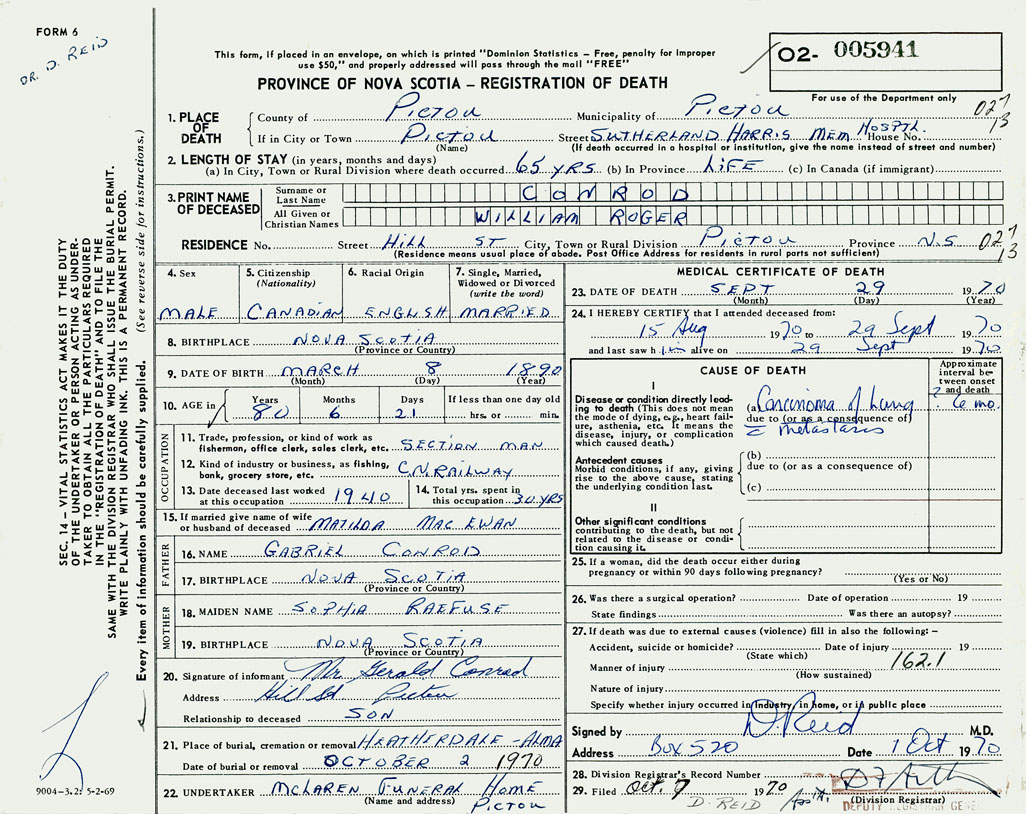 FORM 6
DR. D. REID
This form, if placed in an envelope, on which is printed "Dominion Statistics – Free, penalty for improper
use $50," and properly addressed will pass through the mail "FREE"
02- 005941
PROVINCE OF NOVA SCOTIA – REGISTRATION OF DEATH
For use of the Department only
1. PLACE OF DEATH
County of PICTOU Municipality of PICTOU 027
13
If in City or Town PICTOU Street SUTHERLAND HARRIS MEM HOSPTL. House No.
(Name) (If death occurred in a hospital or institution, give the name instead of street and number)
2. LENGTH OF STAY (in years, months and days)
(a) In City, Town or Rural Division where death occurred 65 YRS (b) In Province LIFE (c) In Canada (if immigrant)
3. PRINT NAME OF DECEASED
Surname or Last Name CONROD
All Given or Christian Names WILLIAM ROGER
RESIDENCE No. Street Hill ST City, Town or Rural Division PICTOU Province N.S 027
13
(Residence means usual place of abode. Post Office Address for residents in rural parts not sufficient)
4. Sex
MALE
5. Citizenship
(Nationality)
CANADIAN
6. Racial Origin
ENGLISH
7. Single, Married,
Widowed or Divorced
(write the word)
MARRIED
8. BIRTHPLACE NOVA SCOTIA
(Province or Country)
9. DATE OF BIRTH MARCH 8 1890
(Month) (Day) (Year)
10. AGE in Years Months Days If less than one day old
80 6 21 hrs. or min.
OCCUPATION
11. Trade, profession, or kind of work as
fisherman, office clerk, sales clerk, etc. SECTION MAN
12. Kind of industry or business, as fishing,
bank, grocery store, etc. C.N. RAILWAY
13. Date deceased last worked
at this occupation 1940
14. Total yrs. spent in
this occupation 30 YRS
15. If married give name of wife
or husband of deceased MATILDA MAC EWAN
FATHER
16. NAME GABRIEL CONROD
17. BIRTHPLACE NOVA SCOTIA
(Province or Country)
MOTHER
18. MAIDEN NAME SOPHIA RAEFUSE
19. BIRTHPLACE NOVA SCOTIA
(Province or Country)
20. Signature of informant Mr Gerald Conrod
Address Hill St Pictou
Relationship to deceased SON
21. Place of burial, cremation or removal HEATHERDALE - ALMA
Date of burial or removal OCTOBER 2 1970
22. UNDERTAKER McLAREN FUNERAL HOME
(Name and address) PICTOU
MEDICAL CERTIFICATE OF DEATH
23. DATE OF DEATH SEPT 29 1970
(Month) (Day) (Year)
24. I HEREBY CERTIFY that I attended deceased from:
15 Aug 1970 to 29 Sept 1970
and last saw him alive on 29 Sept 1970
CAUSE OF DEATH
Approximate interval between onset and death
I
Disease or condition directly leading to death (This does not
mean the mode of dying, e.g., heart failure, asthenia, etc. It means the
disease, injury, or complication
which caused death.)
(a) Carcinoma of Lung ? 6 mo.
due to (or as a consequence of)
c̄ metastasis
Antecedent causes
Morbid conditions, if any, giving
rise to the above cause, stating
the underlying condition last.
(b)
due to (or as a consequence of)
(c)
II
Other significant conditions
contributing to the death, but not
related to the disease or condition causing it.
25. If a woman, did the death occur either during
pregnancy or within 90 days following pregnancy?
(Yes or No)
26. Was there a surgical operation? Date of operation 19
State findings Was there an autopsy?
27. If death was due to external causes (violence) fill in also the following: –
Accident, suicide or homicide? Date of injury 19
(State which)
Manner of injury 162.1
(How sustained)
Nature of injury
Specify whether injury occurred in Industry, in home, or in public place
Signed by D. Reid M.D.
Address BOX 520 Date 1 Oct 1970
28. Division Registrar's Record Number
29. Filed Oct. 7 1970
D. REID
(Division Registrar)
DEPUTY REGISTRAR GENERAL
SEC. 14 – VITAL STATISTICS ACT MAKES IT THE DUTY
OF THE UNDERTAKER OR PERSON ACTING AS UNDER-
TAKER TO OBTAIN ALL THE PARTICULARS REQUIRED
IN THE "REGISTRATION OF DEATH" AND TO FILE THE
SAME WITH THE DIVISION REGISTRAR WHO SHALL ISSUE THE BURIAL PERMIT.
WRITE PLAINLY WITH UNFADING INK. THIS IS A PERMANENT RECORD.
Every item of information should be carefully supplied. (See reverse side for instructions.)
9004-3.2: 5-2-69